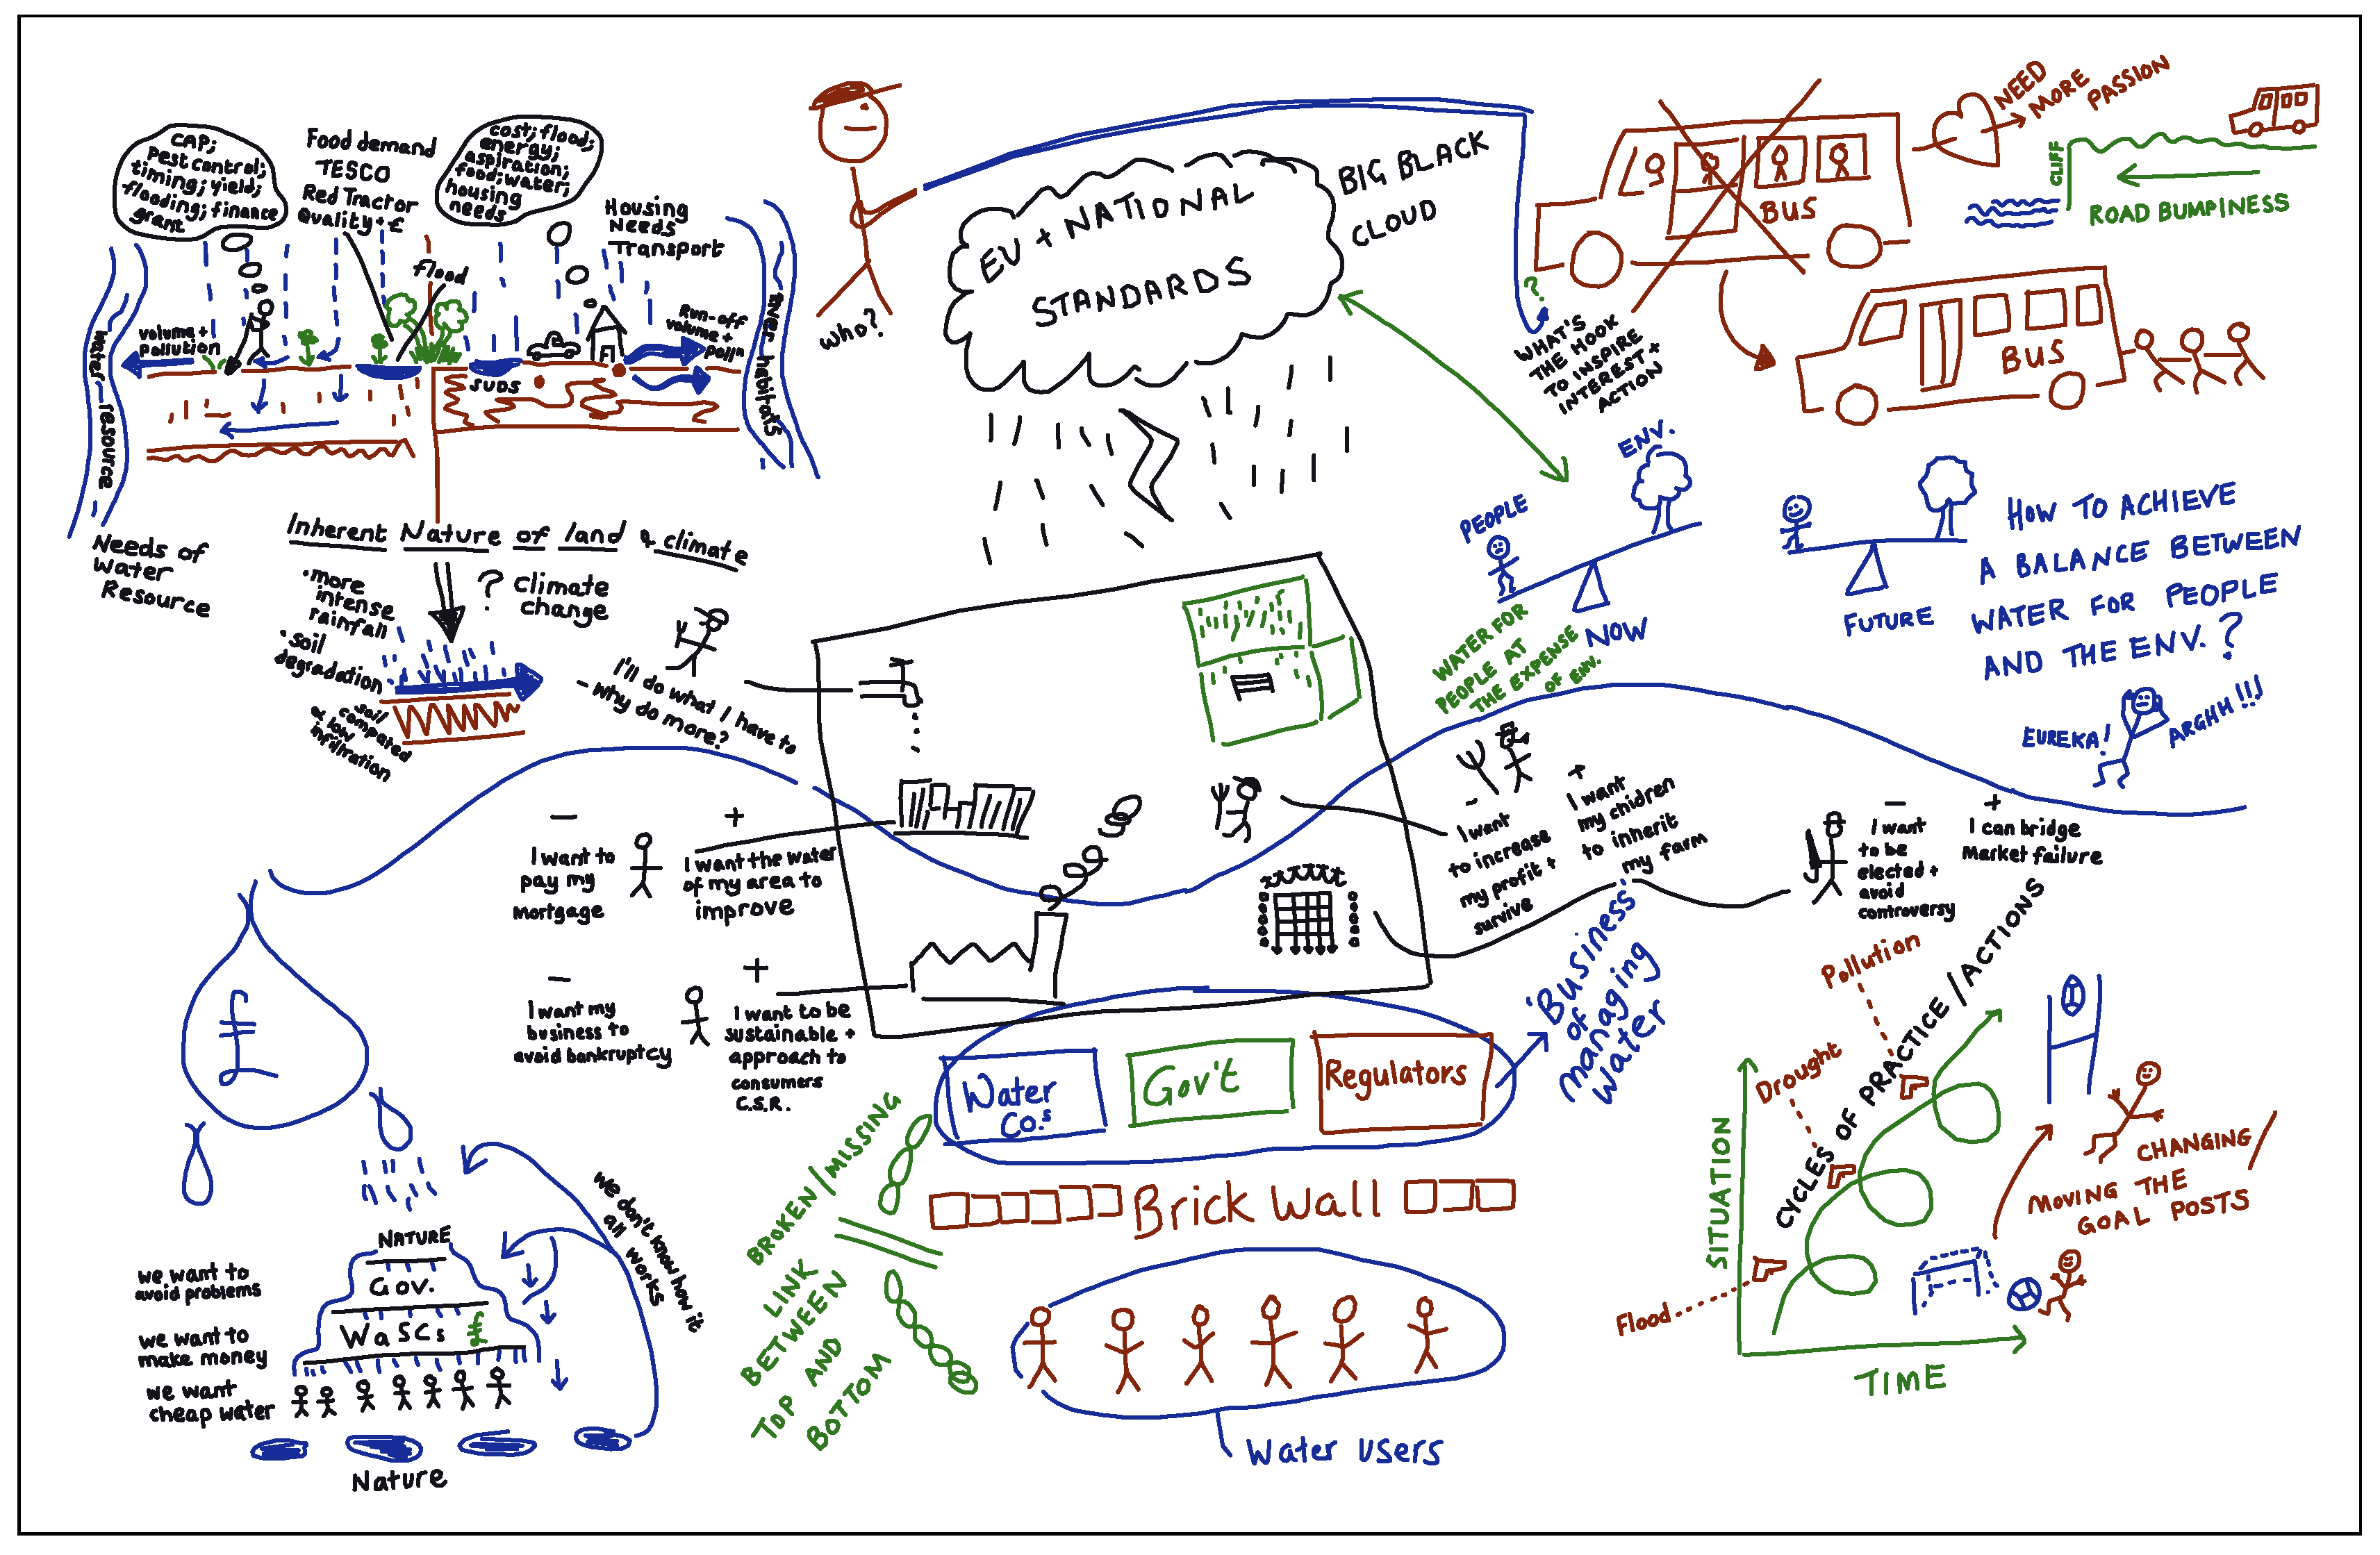 CAP;
Pest control;
timing; yield;
flooding; finance
grant
Food demand
TESCO
Red Tractor
Quality + £
cost; flood;
energy;
aspiration;
food; water;
housing
needs
Housing
Needs
Transport
flood
volume +
pollution
Run-off
volume +
poll'n
SUDS
water resource
river habitats
Needs of
Water
Resource
Inherent Nature of land & climate
? climate
change
• more
intense
rainfall
• soil
degradation
soil
compated
& low
infiltration
Who?
EU + NATIONAL
STANDARDS
BIG BLACK
CLOUD
?
WHAT'S
THE HOOK
TO INSPIRE
INTEREST +
ACTION
BUS
NEED
MORE
PASSION
CLIFF
ROAD BUMPINESS
BUS
PEOPLE
ENV.
NOW
WATER FOR
PEOPLE AT
THE EXPENSE
OF ENV.
FUTURE
HOW TO ACHIEVE
A BALANCE BETWEEN
WATER FOR PEOPLE
AND THE ENV.?
EUREKA!
ARGHH!!!
I'll do what I have to
- why do more?
−
I want to
pay my
mortgage
+
I want the water
of my area to
improve
−
I want my
business to
avoid bankruptcy
+
I want to be
sustainable +
approach to
consumers
C.S.R.
−
I want
to increase
my profit +
survive
+
I want
my chidren
to inherit
my farm
−
I want
to be
elected +
avoid
controversy
+
I can bridge
Market failure
£
NATURE
Gov.
WaSCs £
we want to
avoid problems
we want to
make money
we want
cheap water
Nature
we don't know how it
all works
Water
Co.s
Gov't
Regulators
'Business'
of
managing
water
Brick Wall
BROKEN/MISSING
LINK
BETWEEN
TOP AND
BOTTOM
Water users
SITUATION
TIME
CYCLES OF PRACTICE/ACTIONS
Flood
Drought
Pollution
CHANGING/
MOVING THE
GOAL POSTS